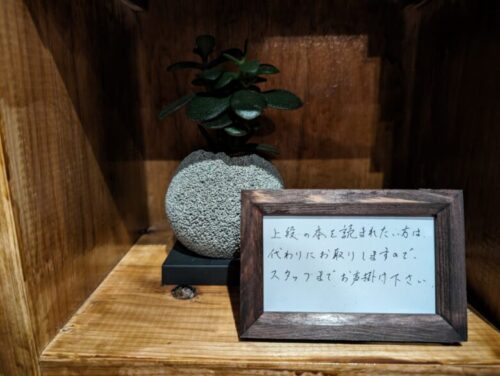 上段の本を読まれたい方は、
代わりにお取りしますので、
スタッフまでお声掛け下さい。